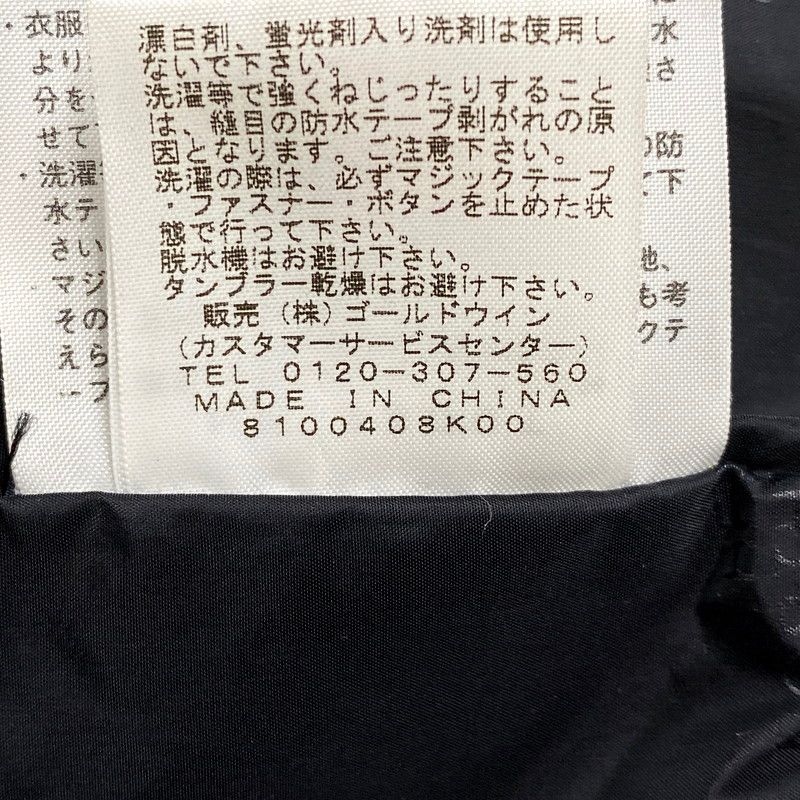 漂白剤、蛍光剤入り洗剤は使用し
ないで下さい。
洗濯等で強くねじったりすること
は、縫目の防水テープ剥がれの原
因となります。ご注意下さい。
洗濯の際は、必ずマジックテープ
・ファスナー・ボタンを止めた状
態で行って下さい。
脱水機はお避け下さい。
タンブラー乾燥はお避け下さい。
販売（株）ゴールドウイン
（カスタマーサービスセンター）
TEL 0120-307-560
MADE IN CHINA
8100408K00
・衣服
より
分を
せて
・洗濯
水テ
さい
マジ
その
えら
水
さ
の防
下
地、
も考
クテ